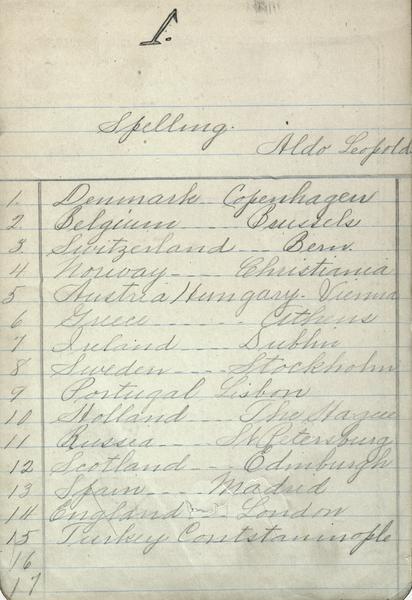 1.
Spelling.
Aldo Leopold
1. Denmark Copenhagen
2. Belgium Brussels
3. Switzerland --- Bern.
4 Norway --- Christiania
5 Austria Hungary. Vienna
6 Greece ---- Athens
7 Ireland --- Dublin
8 Sweden ---- Stockholm
9 Portugal Lisbon
10 Holland --- The Hague
11 Russia --- St. Petersburg
12 Scotland --- Edinburgh
13 Spain --- Madrid
14 England --- London
15 Turkey Contstaninople
16
17